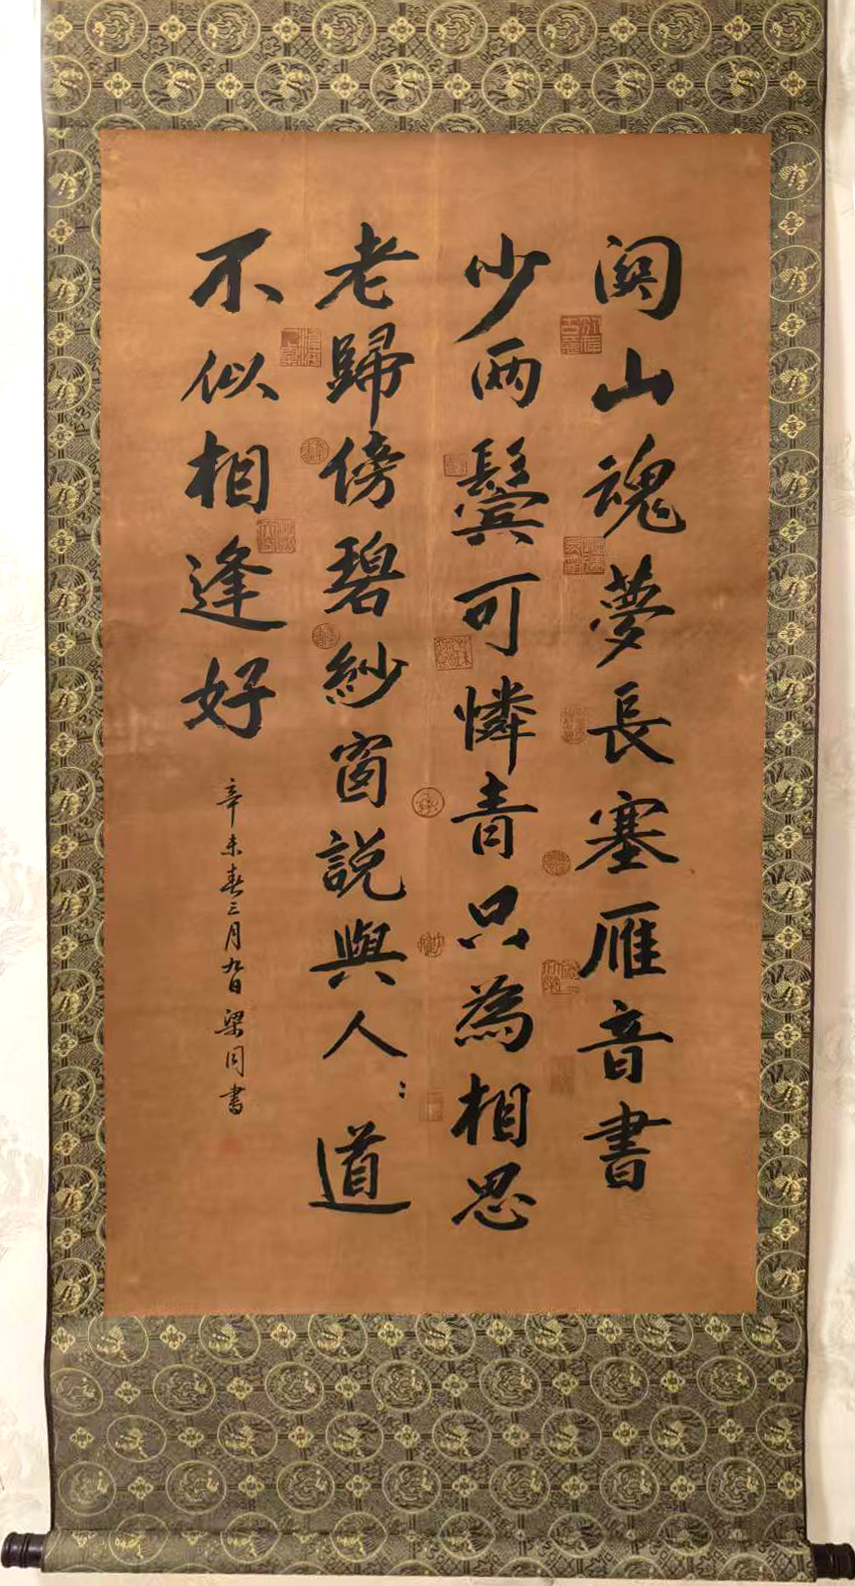 関山魂夢長塞雁音書
少两鬢可憐青只為相思
老歸傍碧紗窗說與人〻道
不似相逢好
辛未春三月九日 梁同書